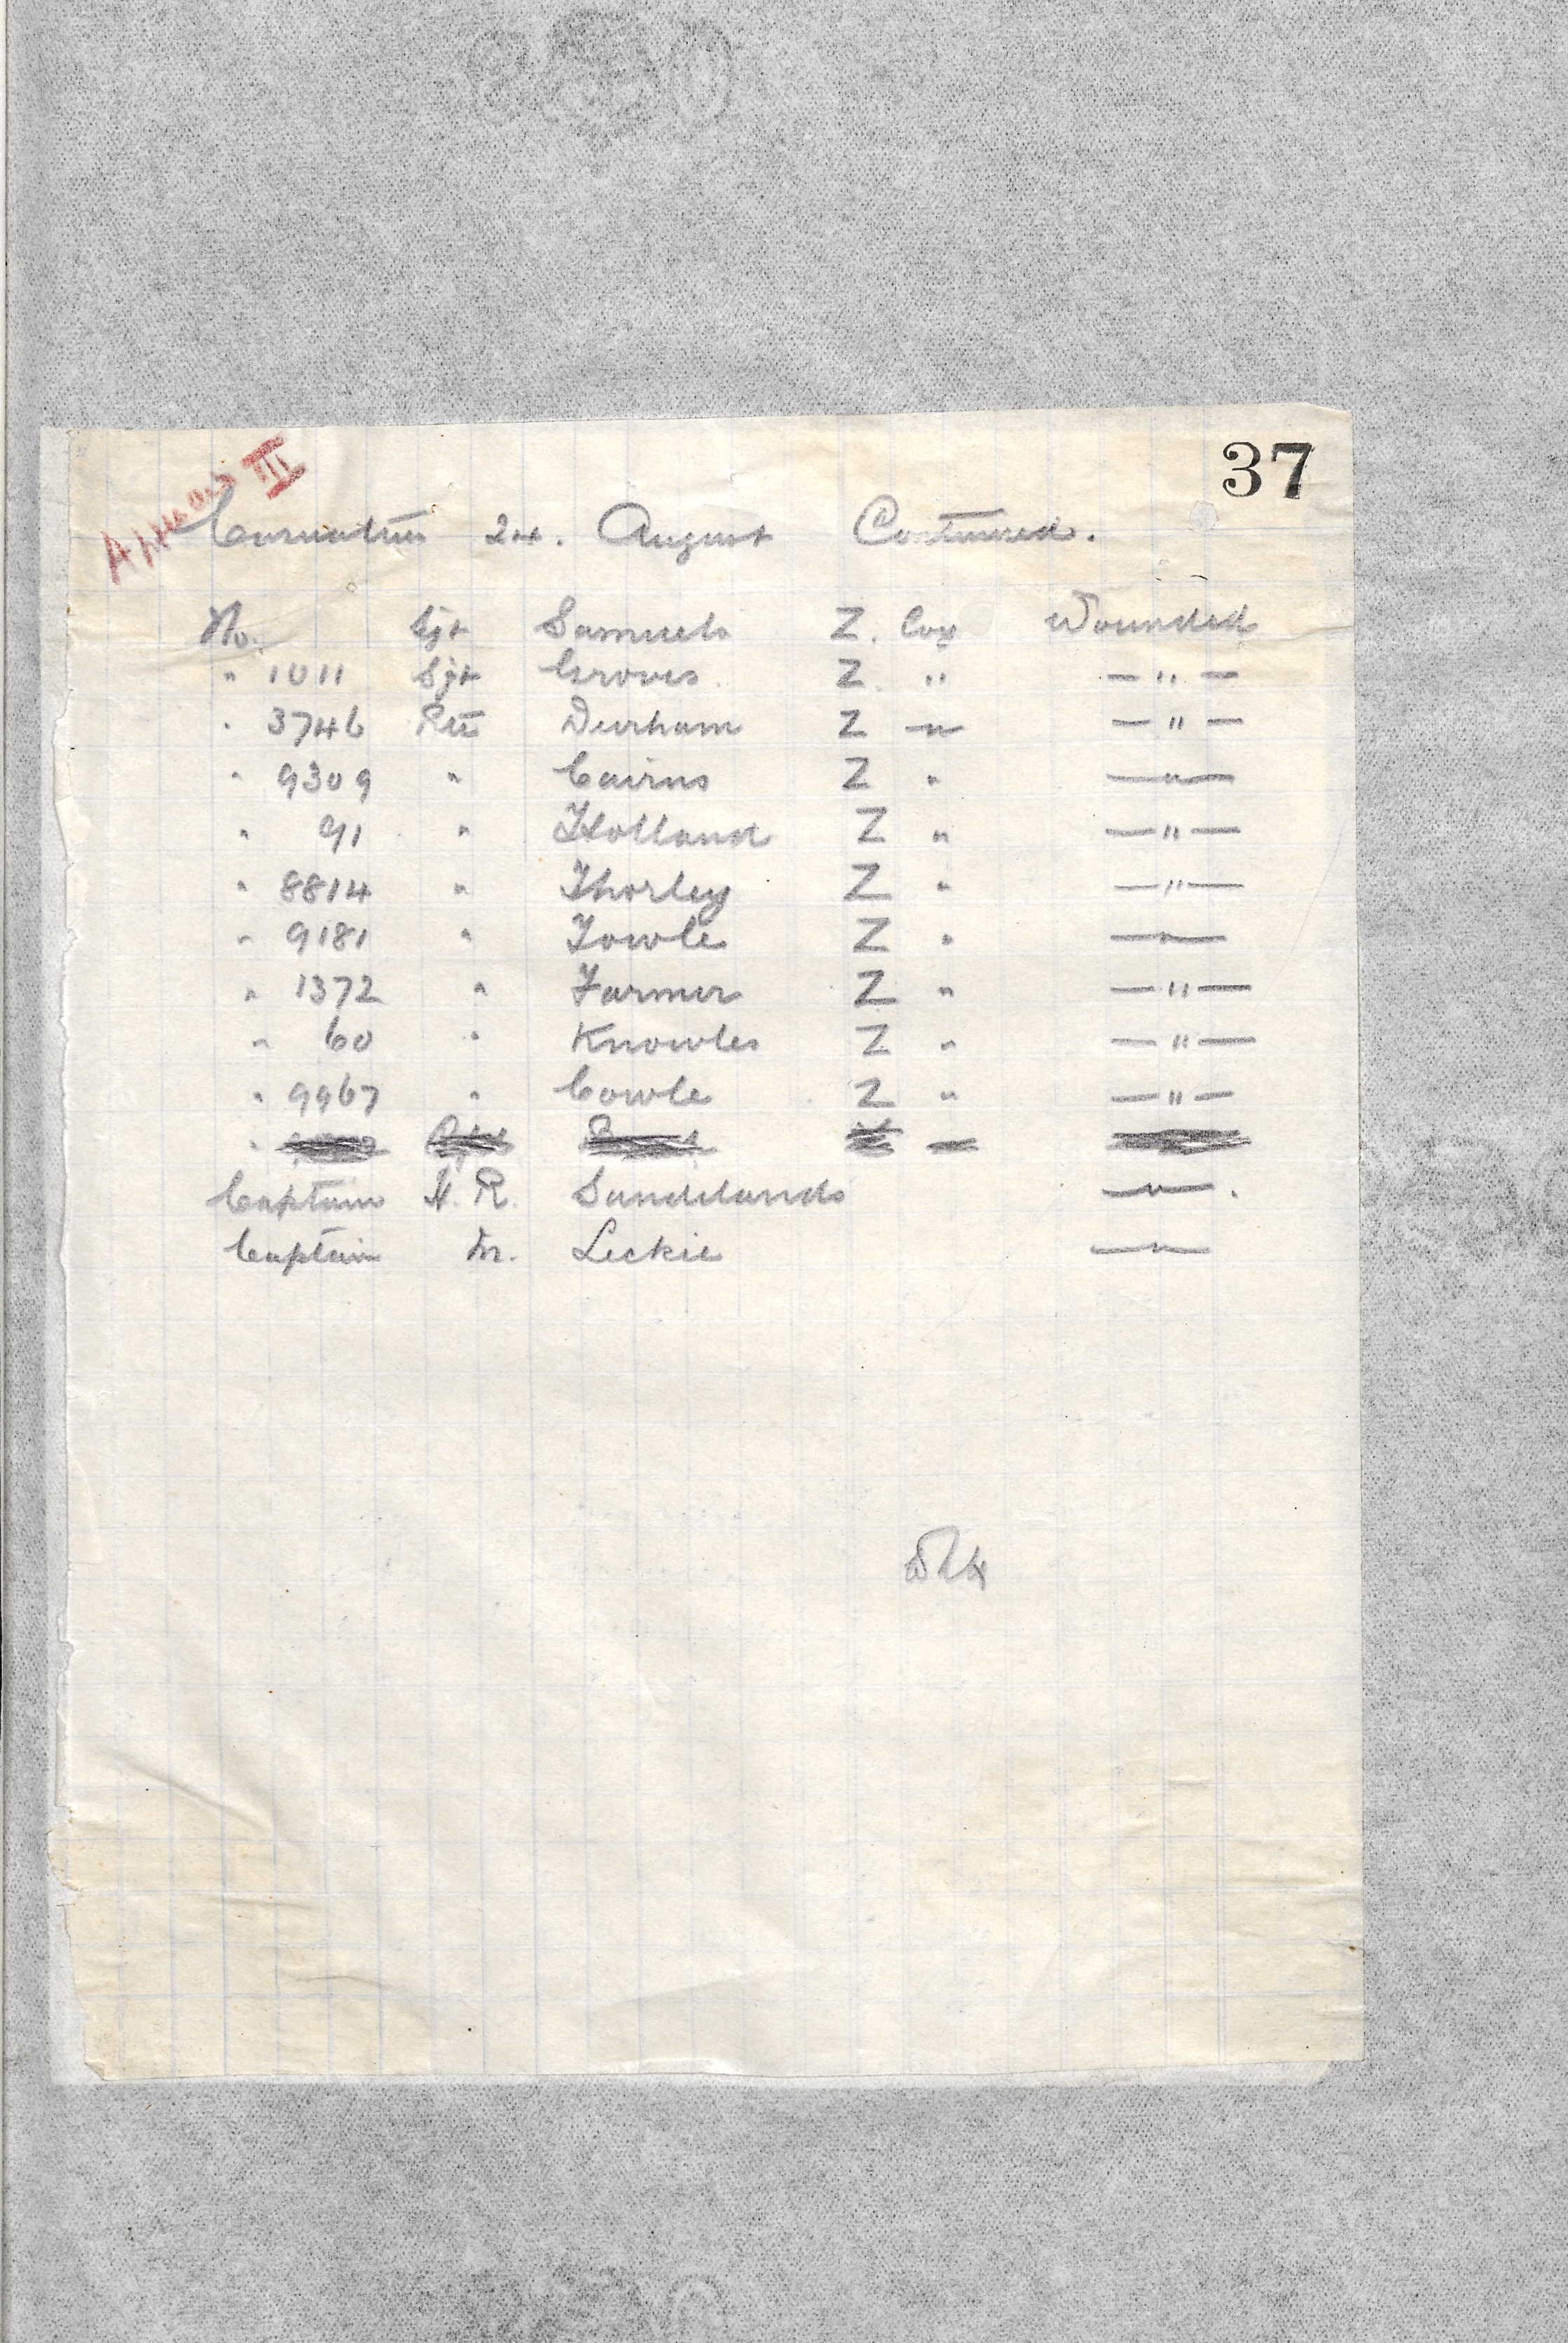 37
Annex III
Casualties 24. August Continued.
No. Sgt Samuels Z. Coy Wounded
" 1011 Sgt Groves. Z. " — " —
" 3746 Pte Durham Z — " — — " —
" 9309 " Cairns Z " — " —
" 91 " Holland Z " — " —
" 8814 " Thorley Z " — " —
" 9181 " Towle Z " — " —
" 1372 " Farmer Z " — " —
" 60 " Knowles Z " — " —
" 9967 " Cowle Z " — " —
Captain H. R. Sandilands — " — .
Captain M. Leckie — " —